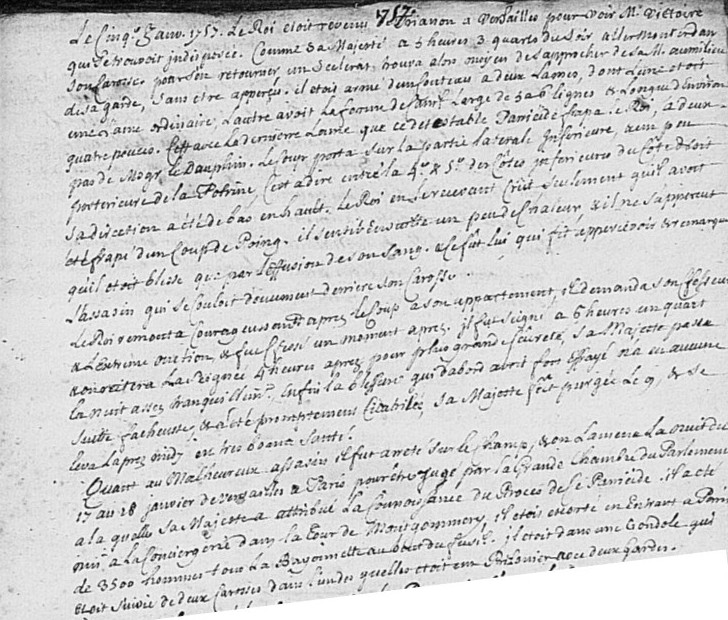 1757.
Le Cinq.e 5 janv. 1757. Le Roi etoit revenu de trianon a Versailles pour voir M.e Victoire
qui se trouvoit indisposée. Comme Sa Majesté a 5 heures 3 quarts du soir alloit monter dan
son Carosse pour s'en retourner un Scelerat trouva alors moyen de s'approcher de sa M. au milieu
de sa garde, sans etre apperçu. il etoit armé d'un couteau a deux Lames, dont L'une etoit
une Lame ordinaire, L'autre avoit La forme de Canif Large de 5 a 6 lignes & Longue d'Environ
quatre pouces. C'est avec La derniere Lame que ce detestable Paricide frapa le Roi, a deux
pas de Mogr le Dauphin. Le Coup porta sur la partie laterale Inferieure, & un peu
posterieure de la Potrine, C'est a dire entre la 4.e & 5.e des Côtes inferieures du Côté droit
Sa direction a été de bas en haut. Le Roi en Le recevant Crût seulement qu'il avoit
eté frapé d'un Coup de Poing. il sentit Ensuitte un peu de Chaleur, & il ne s'apperçut
qu'il etoit blessé que par L'effusion de son sang. & Ce fut lui qui fit appercevoir & remarque
L'assasin qui se couloit doucement derriere son Carosse.
Le Roi remonta Courageusement aprez le Coup a son appartement, & demanda son Confesseur
& L'extrême onction, & fut Confessé un moment aprez. il fut seigné a 6 heures un quart
& on reitera La seignée 4 heures aprez pour plus grande sûreté, Sa Majesté passa
la nuit assez tranquillem.t Enfin la blessure qui d'abord avoit fort Effrayé n'a eu aucune
suitte facheuse, & a été promptement Cicatrisée, Sa Majesté fut purgée Le 9, & se
leva l'apres midy en tres bonne Santé.
Quant au Malheureux assasin il fut arreté sur le Champ, & on L'amena La nuit du
17 au 18 janvier de versailles a Paris pour être jugé par la Grande Chambre du Parlement
a la quelle Sa Majesté a attribué La Connoissance du Procès de Ce Paricide. il a eté
mis a la Conciergerie dans la Tour de Montgommery, il etoit escorté en Entrant a Paris
de 3500 hommes tous La Bayonnette au bout du fusil. il etoit dans une Gondole qui
etoit suivie de deux Carosses dans L'un des quelles etoit un Prisonier avec deux Gardes.